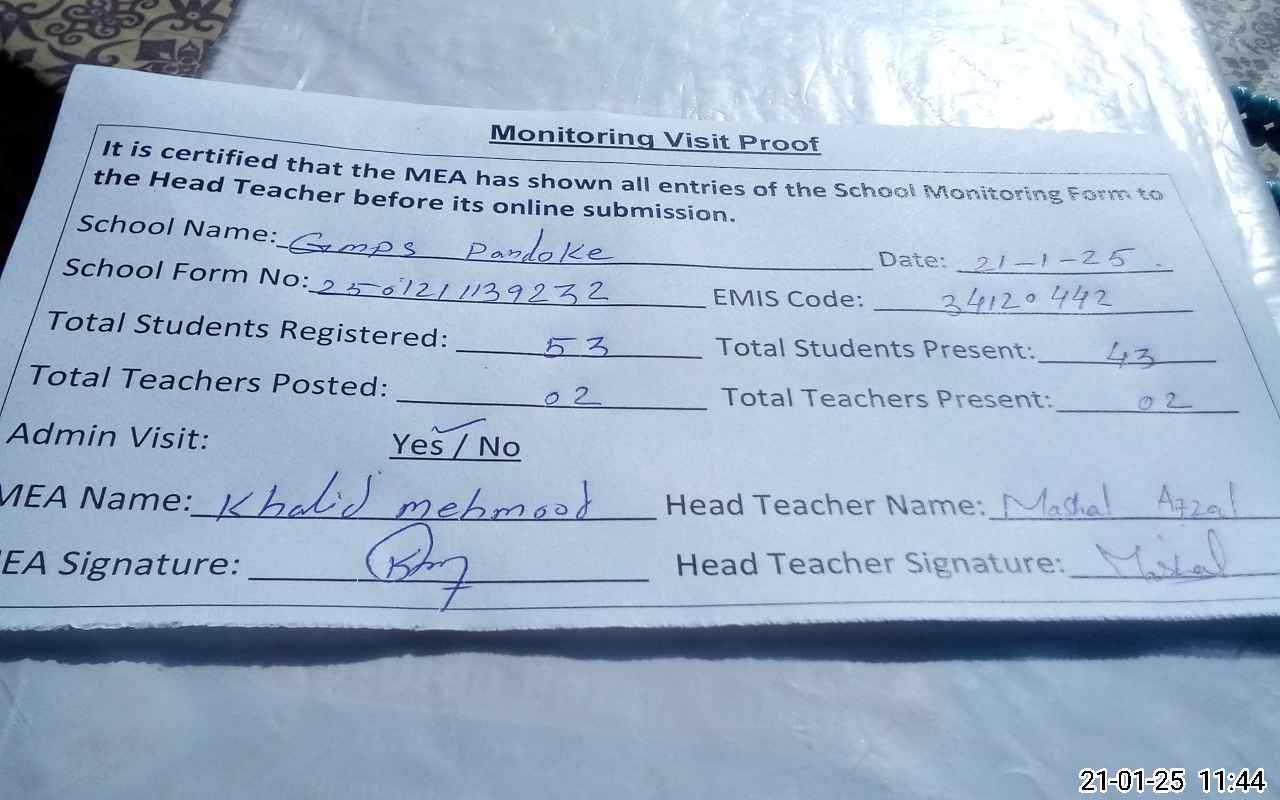 Monitoring Visit Proof
It is certified that the MEA has shown all entries of the School Monitoring Form to
the Head Teacher before its online submission.
School Name: Gmps Pandoke Date: 21-1-25
School Form No: 2501211139232 EMIS Code: 34120442
Total Students Registered: 53 Total Students Present: 43
Total Teachers Posted: 02 Total Teachers Present: 02
Admin Visit: Yes / No
MEA Name: Khalid mehmood Head Teacher Name: Mashal Afzal
EA Signature: Head Teacher Signature: Mashal
21-01-25 11:44